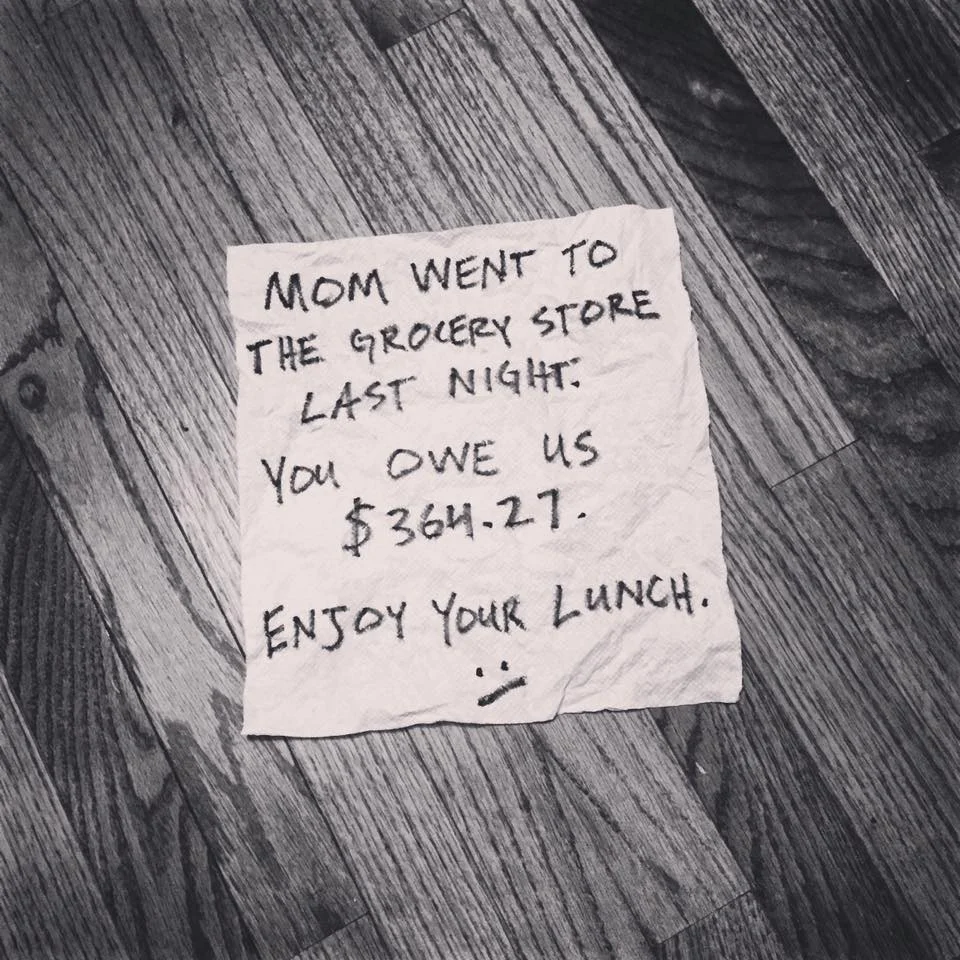 MOM WENT TO
THE GROCERY STORE
LAST NIGHT.
YOU OWE US
$364.27.
ENJOY YOUR LUNCH.